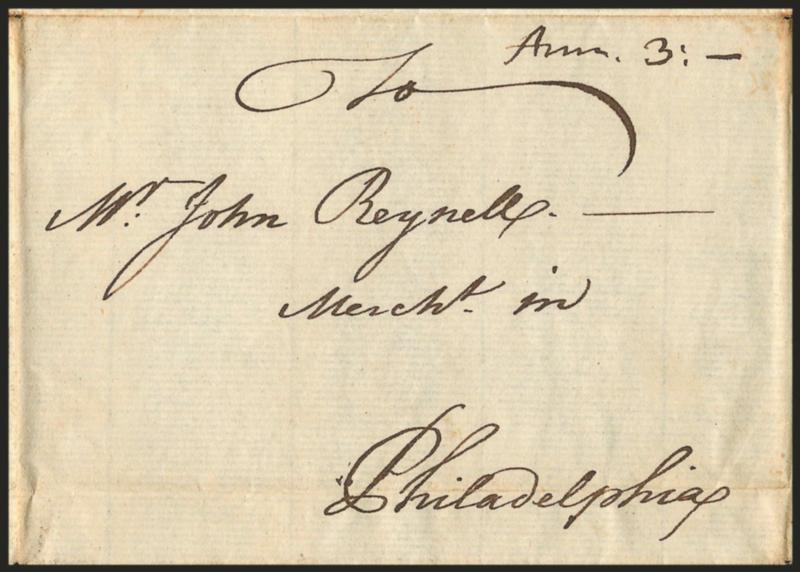 Ann. 3: —
To
Mr. John Reynell. —
Mercht. in
Philadelphia